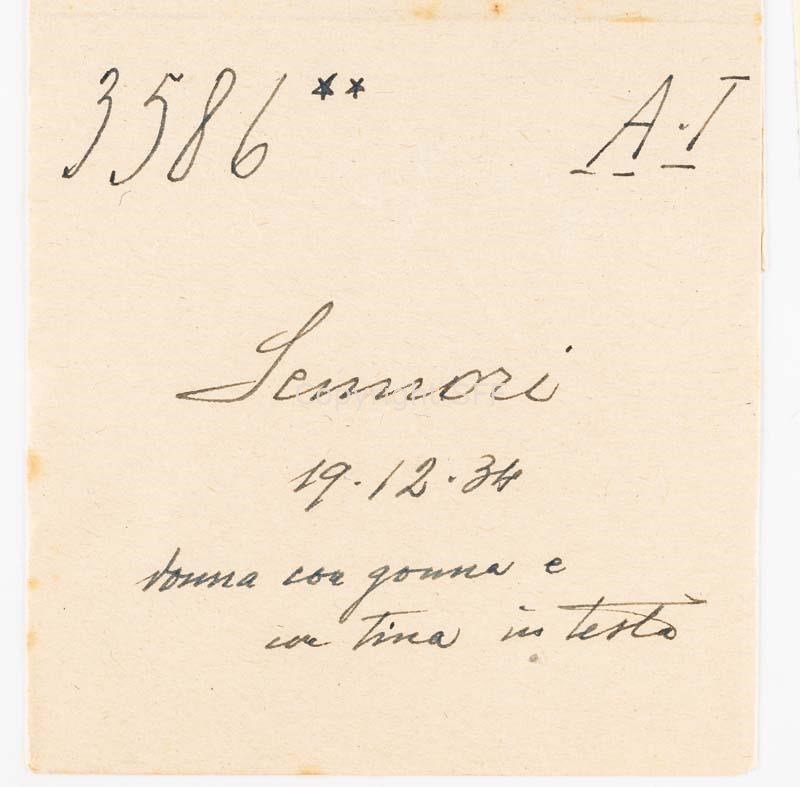 3586** A.I
Sennori
19.12.34
donna con gonna e
con tina in testa